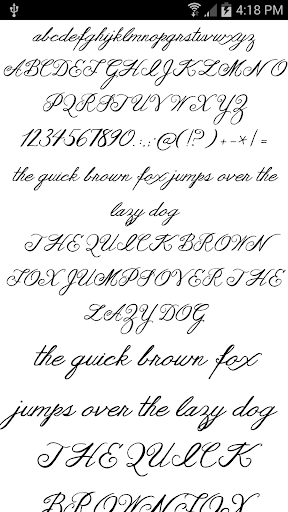 4:18 PM
abcdefghijklmnopqrstuvwxyz
ABCDEFGHIJKLMNO
PQRSTUVWXYZ
1234567890.:,;@(!?)+-*/=
the quick brown fox jumps over the
lazy dog
THE QUICK BROWN
FOX JUMPS OVER THE
LAZY DOG
the quick brown fox
jumps over the lazy dog
THE QUICK
BROWN FOX